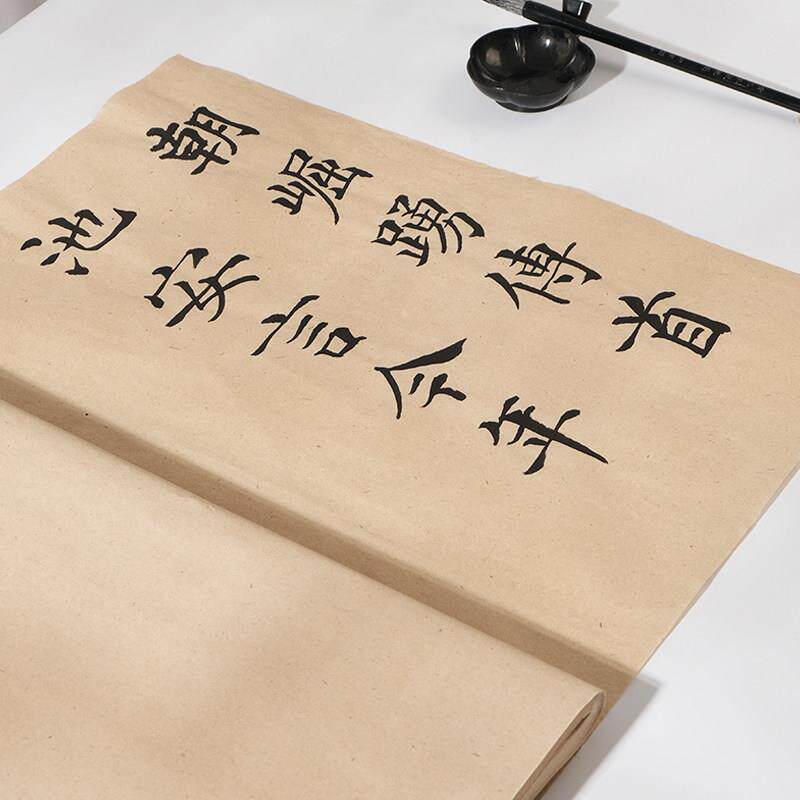 朝崛踴傳首
池安言今年